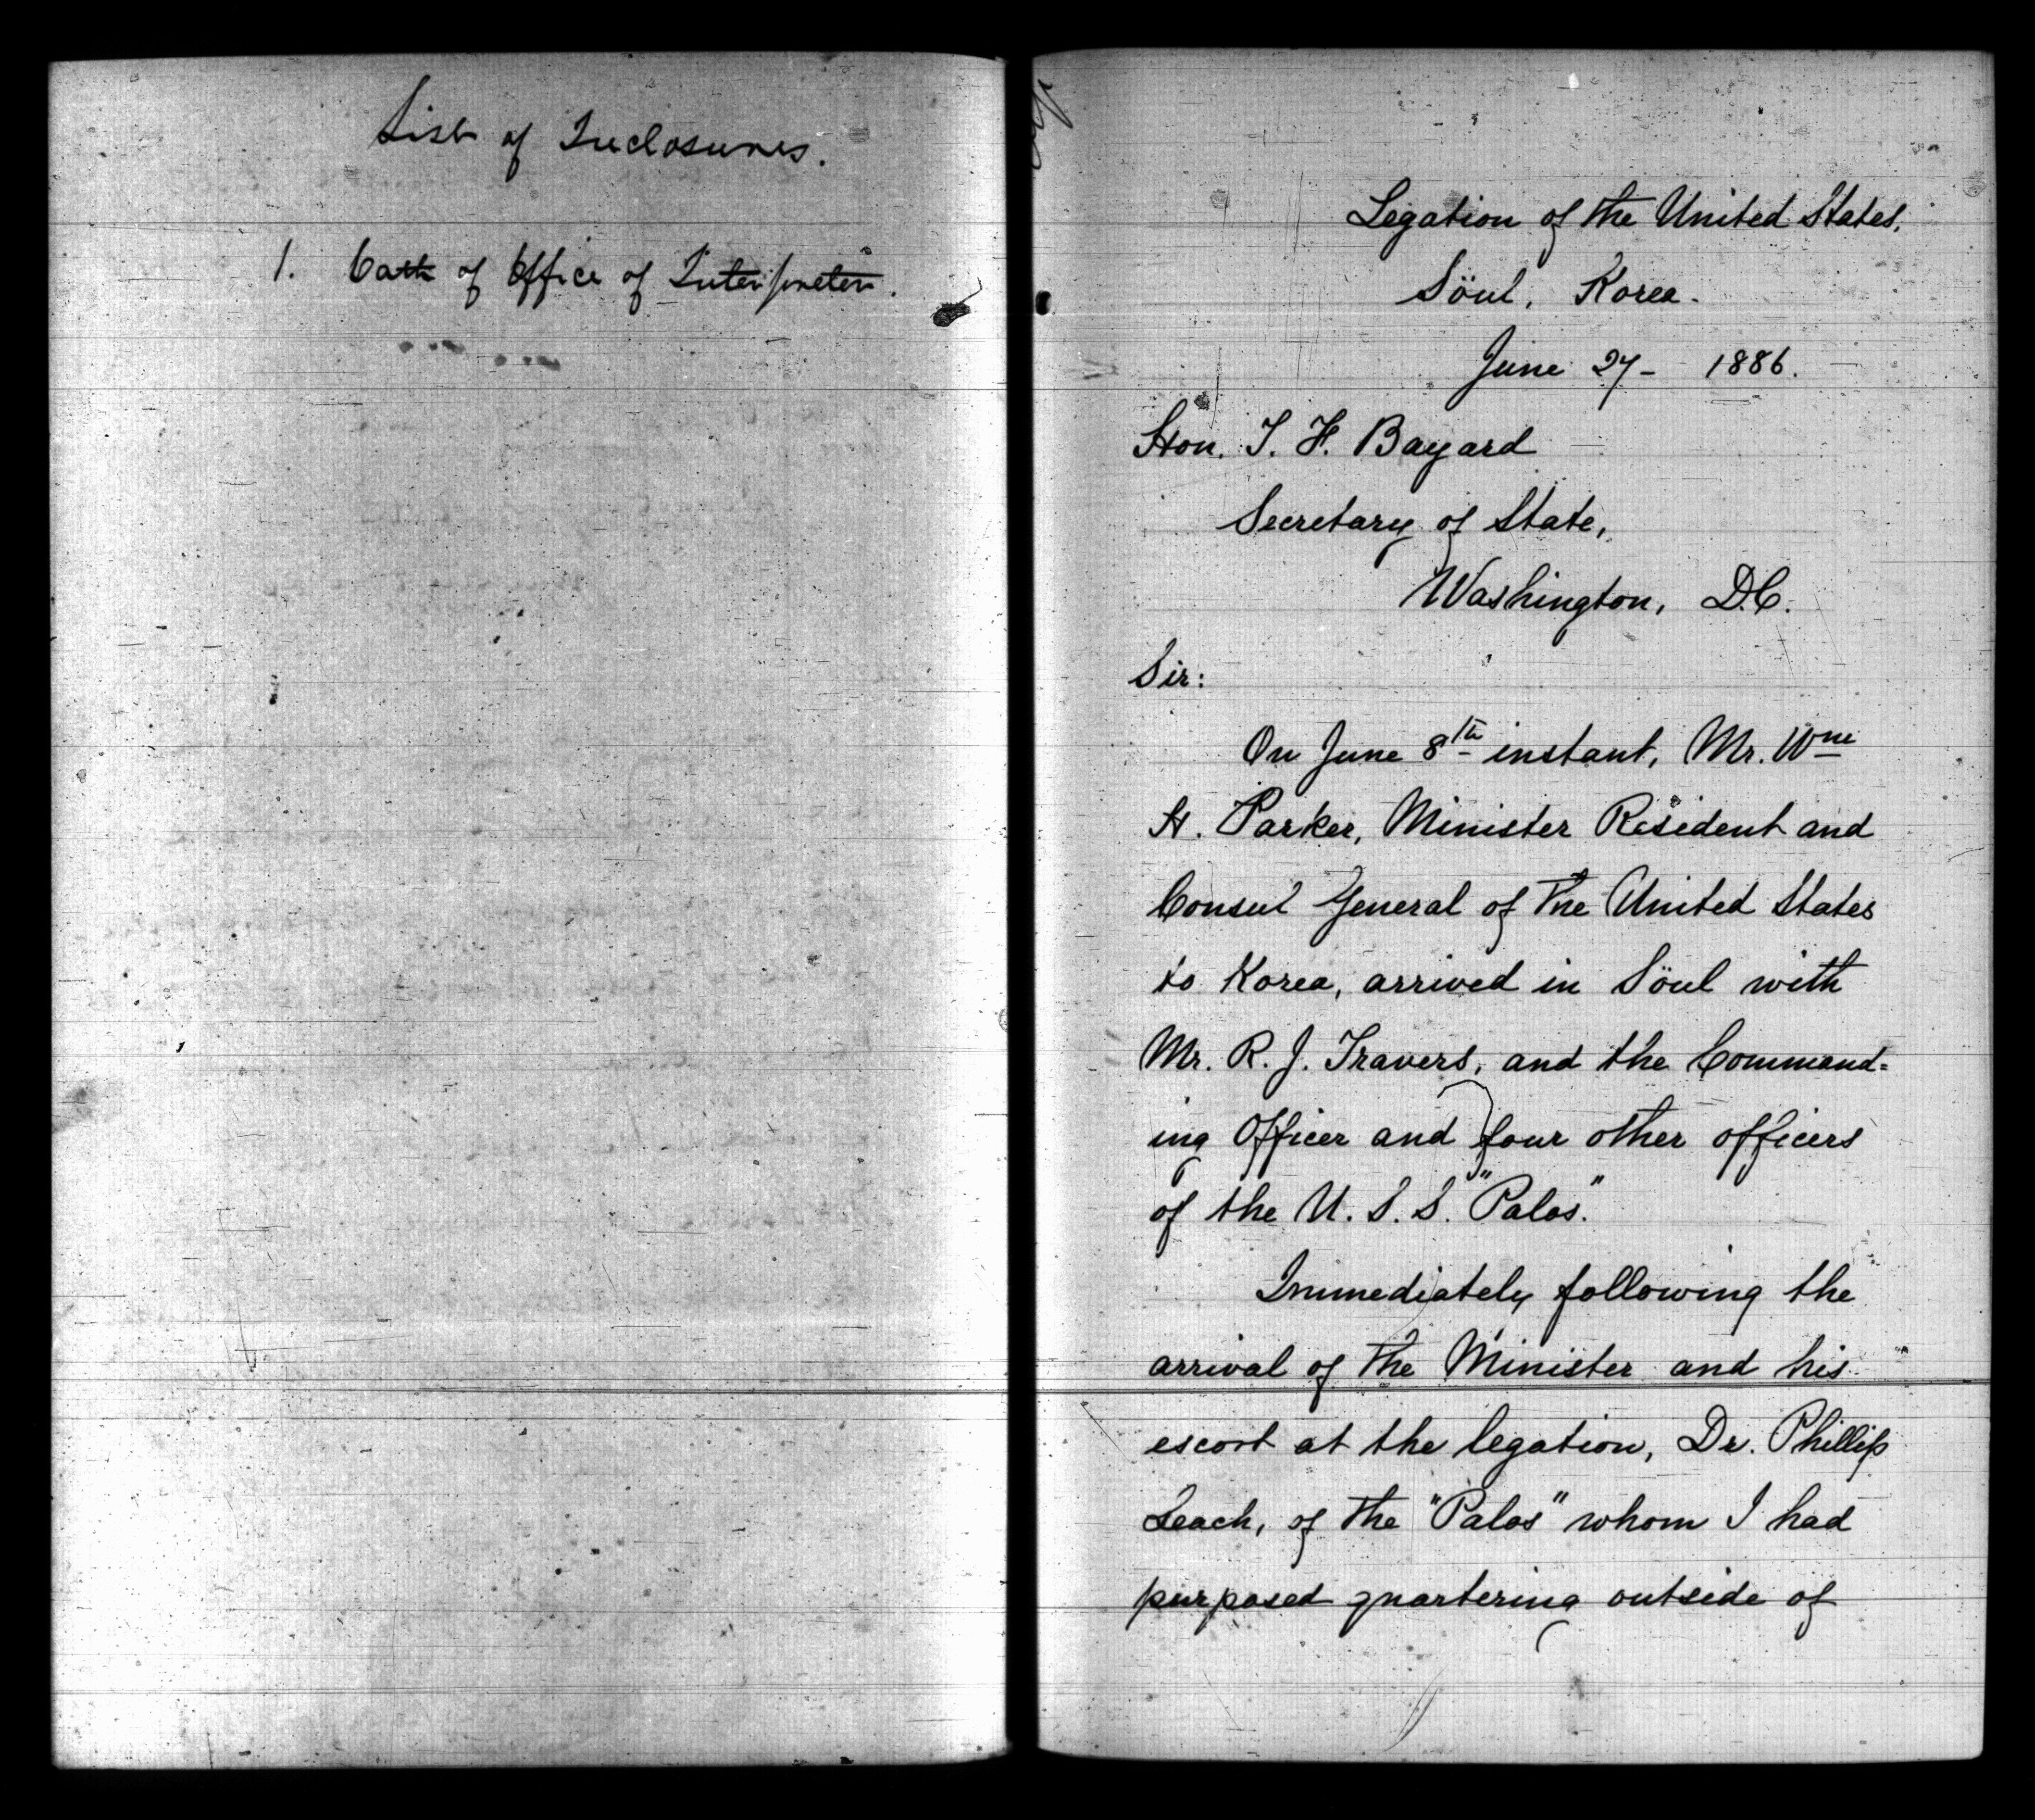 List of Inclosures.
1. Oath of Office of Interpreter.
Legation of the United States,
Söul, Korea.
June 27- 1886.
Hon. T. F. Bayard
Secretary of State,
Washington, D.C.
Sir:
On June 8th instant, Mr. Wm
H. Parker, Minister Resident and
Consul General of the United States
to Korea, arrived in Söul with
Mr. R. J. Travers, and the Command=
ing Officer and four other officers
of the U. S. S. "Palos."
Immediately following the
arrival of the Minister and his
escort at the legation, Dr. Phillip
Leach, of the "Palos" whom I had
purposed quartering outside of